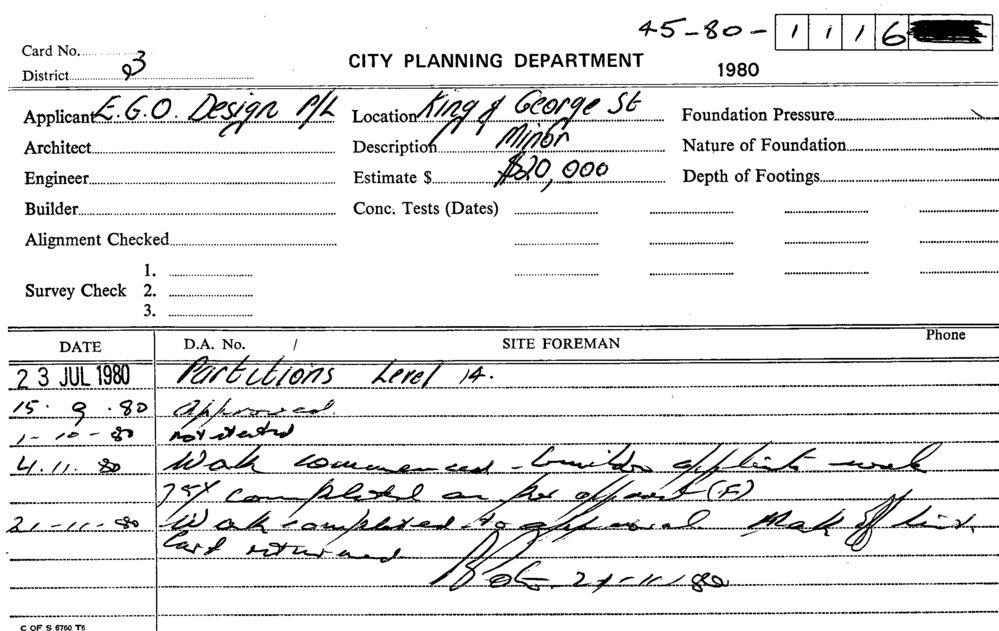 45-80- 1 1 1 6
Card No.
District 3
CITY PLANNING DEPARTMENT
1980
Applicant E.G.O. Design P/L
Location King & George St
Foundation Pressure
Architect
Description Minor
Nature of Foundation
Engineer
Estimate $ $20,000
Depth of Footings
Builder
Conc. Tests (Dates)
Alignment Checked
1.
Survey Check 2.
3.
DATE D.A. No. / SITE FOREMAN Phone
23 JUL 1980 Partitions Level 14.
15. 9. 80 Approved
1-10-80 not started
4.11.80 Work commenced work
75% completed as per
21-11-80 Work completed to approval
Card returned
21-11-80
C OF S 5760 T6